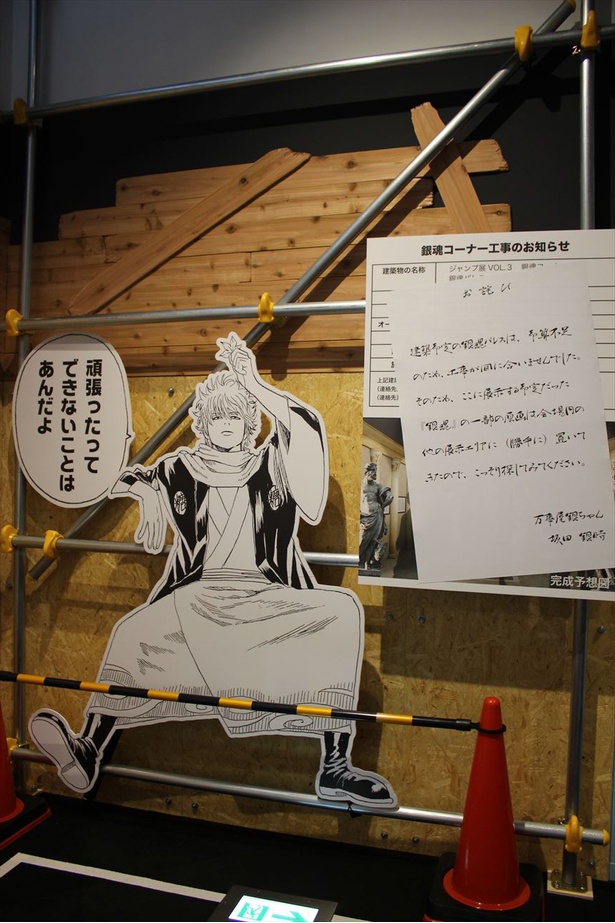 頑張ったって
できないことは
あんだよ
銀魂コーナー工事のお知らせ
建築物の名称
ジャンプ展 VOL.3
お詫び
建築予定の銀魂パレスは、予算不足
のため、工事が間に合いませんでした。
そのため、ここに展示する予定だった
『銀魂』の一部の原画は会場内の
他の展示エリアに(勝手に)置いて
きたので、こっそり探してみてください。
万事屋銀ちゃん
坂田 銀時
上記建
(連絡先
(連絡先
完成予想図